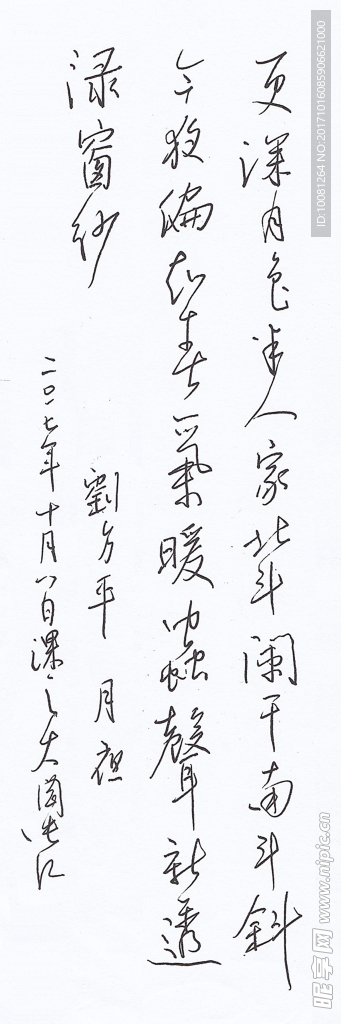 更深月色半人家北斗闌干南斗斜
今夜偏知春氣暖蟲聲新透
渌窗紗
劉方平 月夜
二〇一七年十月八日
ID:10081264 NO:20171016085906621000
昵享网 www.nipic.cn